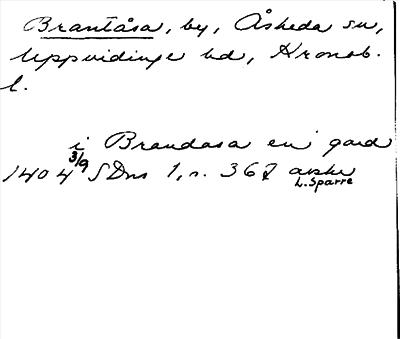 Brantåsa, by, Åsheda sn,
Uppvidinge hd, Kronob.
l.
i Brandasa en gard
1404 3/9 SDns 1, s. 367 avskr
L. Sparre